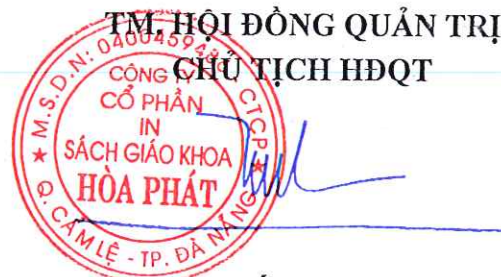 TM. HỘI ĐỒNG QUẢN TRỊ
CHỦ TỊCH HĐQT
M.S.D.N: 0400459486 - CTCP
CÔNG TY
CỔ PHẦN
IN
SÁCH GIÁO KHOA
HÒA PHÁT
Q. CẨM LỆ - TP. ĐÀ NẴNG